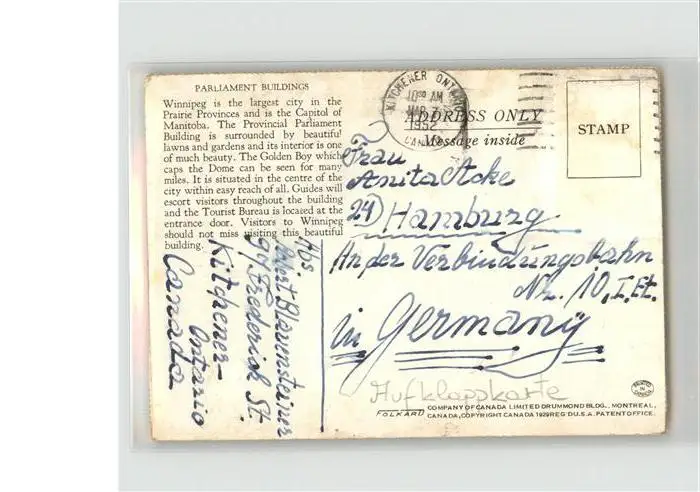 PARLIAMENT BUILDINGS
Winnipeg is the largest city in the
Prairie Provinces and is the Capitol of
Manitoba. The Provincial Parliament
Building is surrounded by beautiful
lawns and gardens and its interior is one
of much beauty. The Golden Boy which
caps the Dome can be seen for many
miles. It is situated in the centre of the
city within easy reach of all. Guides will
escort visitors throughout the building
and the Tourist Bureau is located at the
entrance door. Visitors to Winnipeg
should not miss visiting this beautiful
building.
KITCHENER ONTARIO
10 AM
MAR 7
1952
CANADA
ADDRESS ONLY
Message inside
STAMP
Frau
Anita Acke
24) Hamburg
An der Verbindungsbahn
Nr. 10, I. Et.
in Germany
Abs
Blevensteiner
Frederick St.
Kitchener-
Ontario
Canada
Aufklappkarte
FOLKARD COMPANY OF CANADA LIMITED DRUMMOND BLDG., MONTREAL,
CANADA, COPYRIGHT CANADA 1929 REG'D U.S.A. PATENT OFFICE.
PRINTED IN CANADA